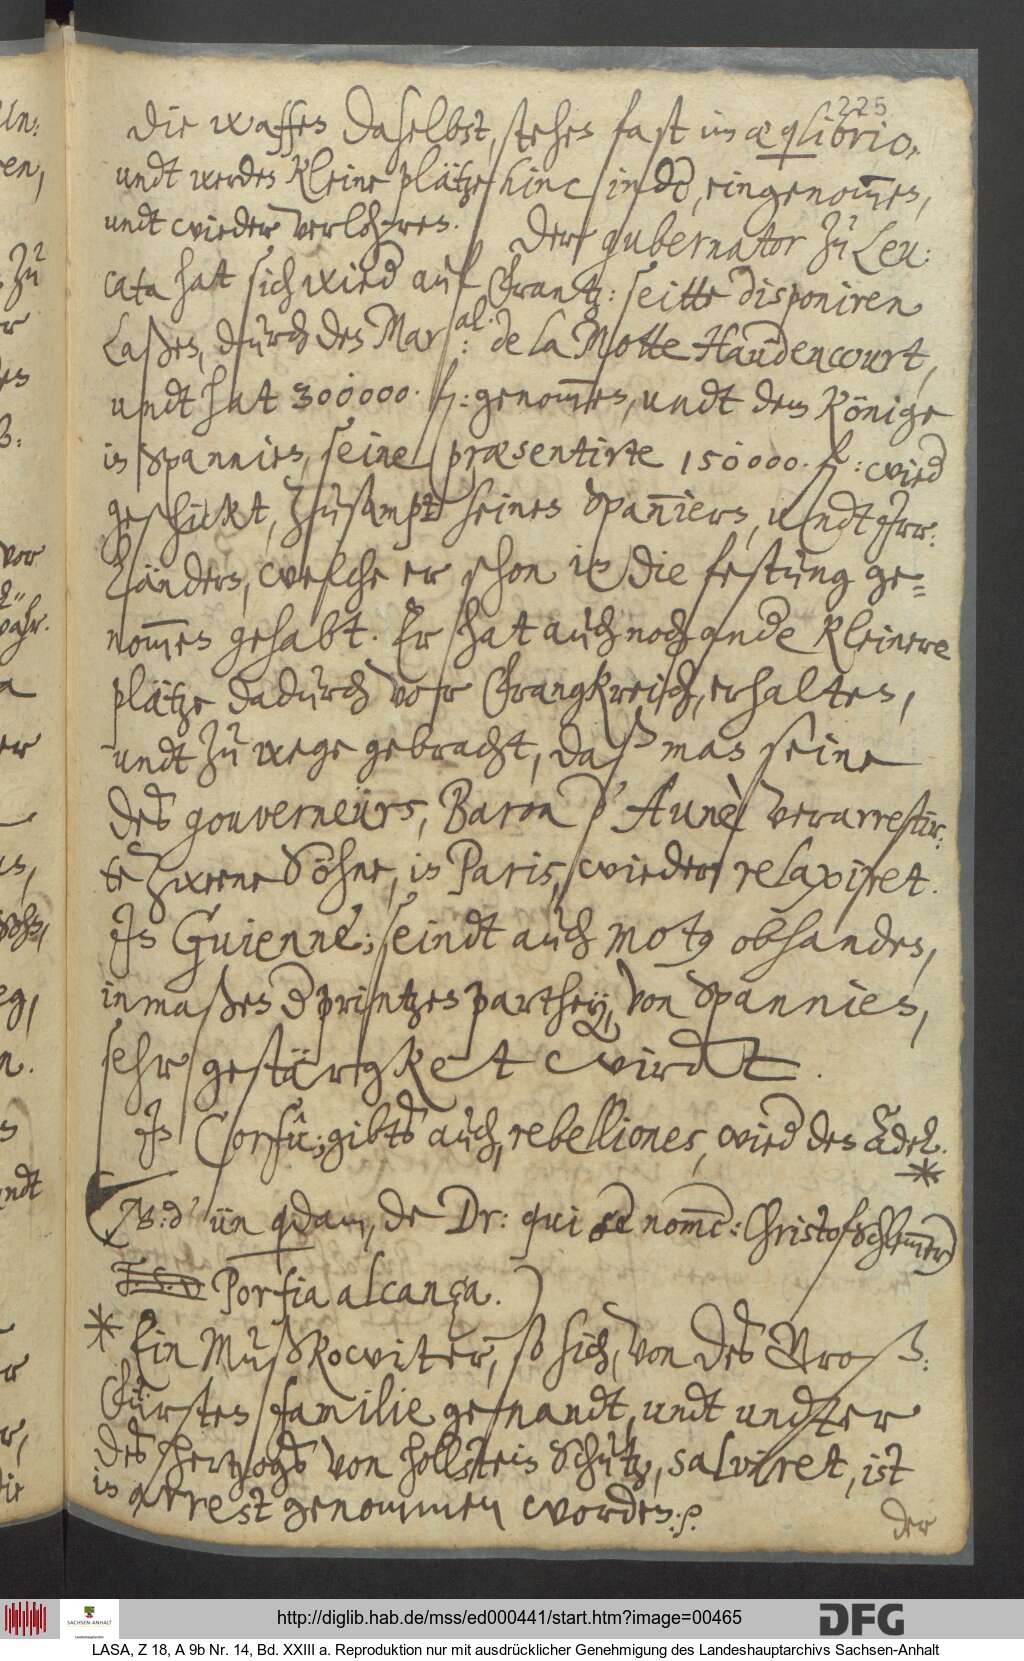 225
die waffen daselbst, stehen fast im æqlibrio,
undt werden kleine plätze hinc inde, eingenom̅en,
undt wieder verlohren. Der gubernator zu Leu:
cata hat sich wied auf Frantz: seitte disponiren
laßen, durch den Mar:al de la Motte Haudencourt,
undt hat 300000 f: genom̅en, undt dem Könige
in Spannien, seine præsentirte 150000 f: wied
geschickt, zusampt seinen Span̅iern, undt Irr:
ländern, welche er schon in die festung ge=
nom̅en gehabt. Er hat auch noch ande kleinere
plätze dadurch vor Frangkreich, erhalten,
undt zu wege gebracht, daß man seine
des gouverneurs, Baron d'Aunè verarrestir:
te zweene Söhne, in Paris, wieder relaxiret.
In Guienne; seindt auch motg obhanden,
inmaßen d printzen parthey, von Spannien,
sehr gestärgket wirdt.
In Corfu; gibts auch, rebelliones, wied den Edel.
*
(NB: d' un qdam, de Dr: qui se nom̅e: Christof Schlam̅er)
Porfia alcança.)
* Ein Mußkowiter, so sich, von des Groß:
Fürsten familie genandt, undt undter
des hertzogs von Hollstein Schutz, salviret, ist
in arrest genommen worden. /.
der
http://diglib.hab.de/mss/ed000441/start.htm?image=00465
SACHSEN-ANHALT
DFG
LASA, Z 18, A 9b Nr. 14, Bd. XXIII a. Reproduktion nur mit ausdrücklicher Genehmigung des Landeshauptarchivs Sachsen-Anhalt